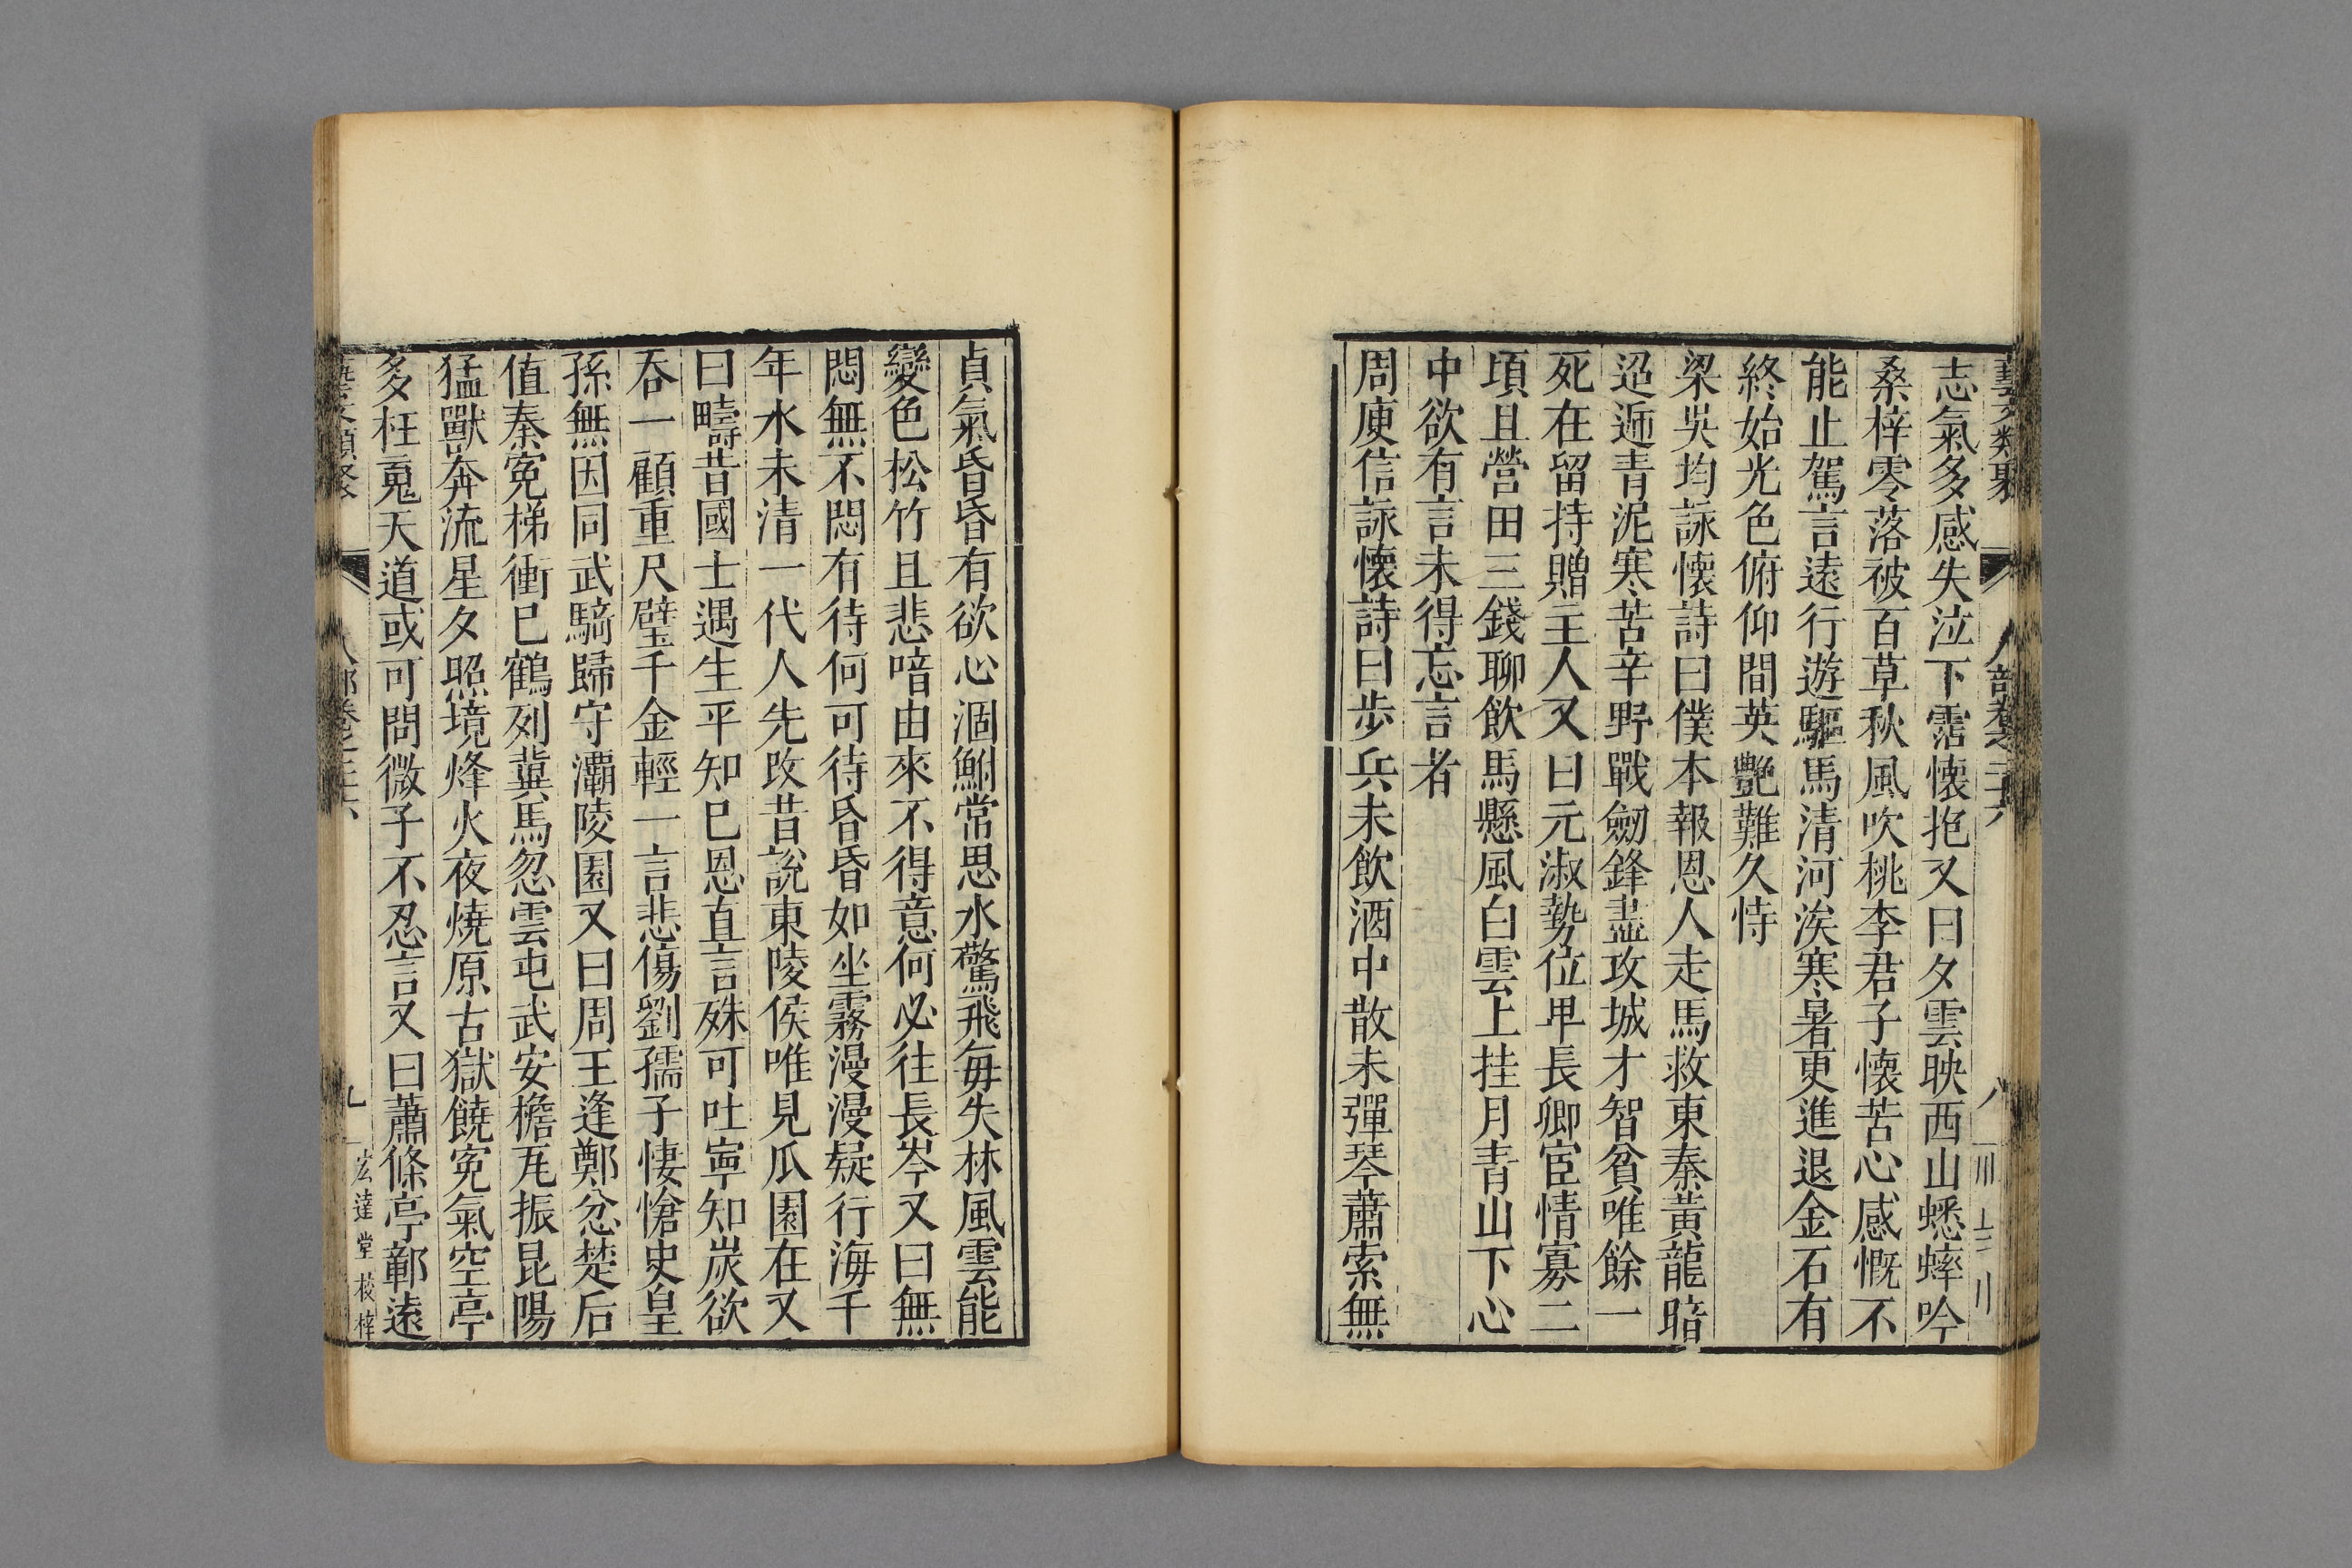 藝文類聚 人部卷之二十六 八
志氣多感失泣下霑懷抱又曰夕雲映西山蟋蟀吟
桑梓零落被百草秋風吹桃李君子懷苦心感慨不
能止駕言遠行遊驅馬清河涘寒暑更進退金石有
終始光色俯仰間英艷難久恃
梁吳均詠懷詩曰僕本報恩人走馬救東秦黃龍暗
迢遞青泥寒苦辛野戰劒鋒盡攻城才智貧唯餘一
死在留持贈主人又曰元淑勢位卑長卿宦情寡二
頃且營田三錢聊飲馬懸風白雲上挂月青山下心
中欲有言未得忘言者
周庾信詠懷詩曰步兵未飲酒中散未彈琴蕭索無
貞氣昏昏有欲心涸鮒常思水驚飛每失林風雲能
變色松竹且悲喑由來不得意何必往長岑又曰無
悶無不悶有待何可待昏昏如坐霧漫漫疑行海千
年水未清一代人先改昔說東陵侯唯見瓜園在又
曰疇昔國士遇生平知巳恩直言殊可吐寧知炭欲
吞一顧重尺璧千金輕一言悲傷劉孺子悽愴史皇
孫無因同武騎歸守灞陵園又曰周王逢鄭忿楚后
值秦冤梯衝巳鶴列冀馬忽雲屯武安檐瓦振昆陽
猛獸奔流星夕照境烽火夜燒原古獄饒冤氣空亭
多枉䰟天道或可問微子不忍言又曰蕭條亭鄣遠
藝文類聚 人部卷之二十六 九 宏達堂校梓